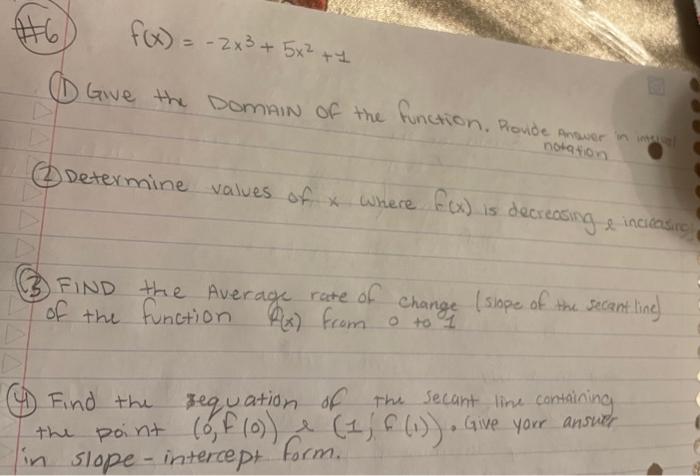 #6 f(x) = -2x³ + 5x² + 1
① Give the DOMAIN OF the function. Provide Answer in interval
notation
② Determine values of x where f(x) is decreasing & increasing
③ FIND the Average rate of change (slope of the secant line)
of the function f(x) from 0 to 1
④ Find the equation of the secant line containing
the point (0, f(0)) & (1, f(1)). Give your answer
in slope-intercept form.